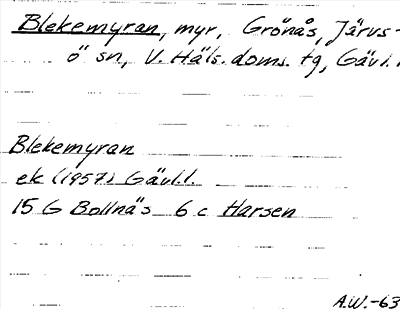 Blekemyran, myr, Grönås, Järvs-
ö sn, V. Häls. doms. tg, Gävl.l.
Blekemyran
ek (1957) Gävl.l.
15 G Bollnäs 6 c Harsen
A.W.-63